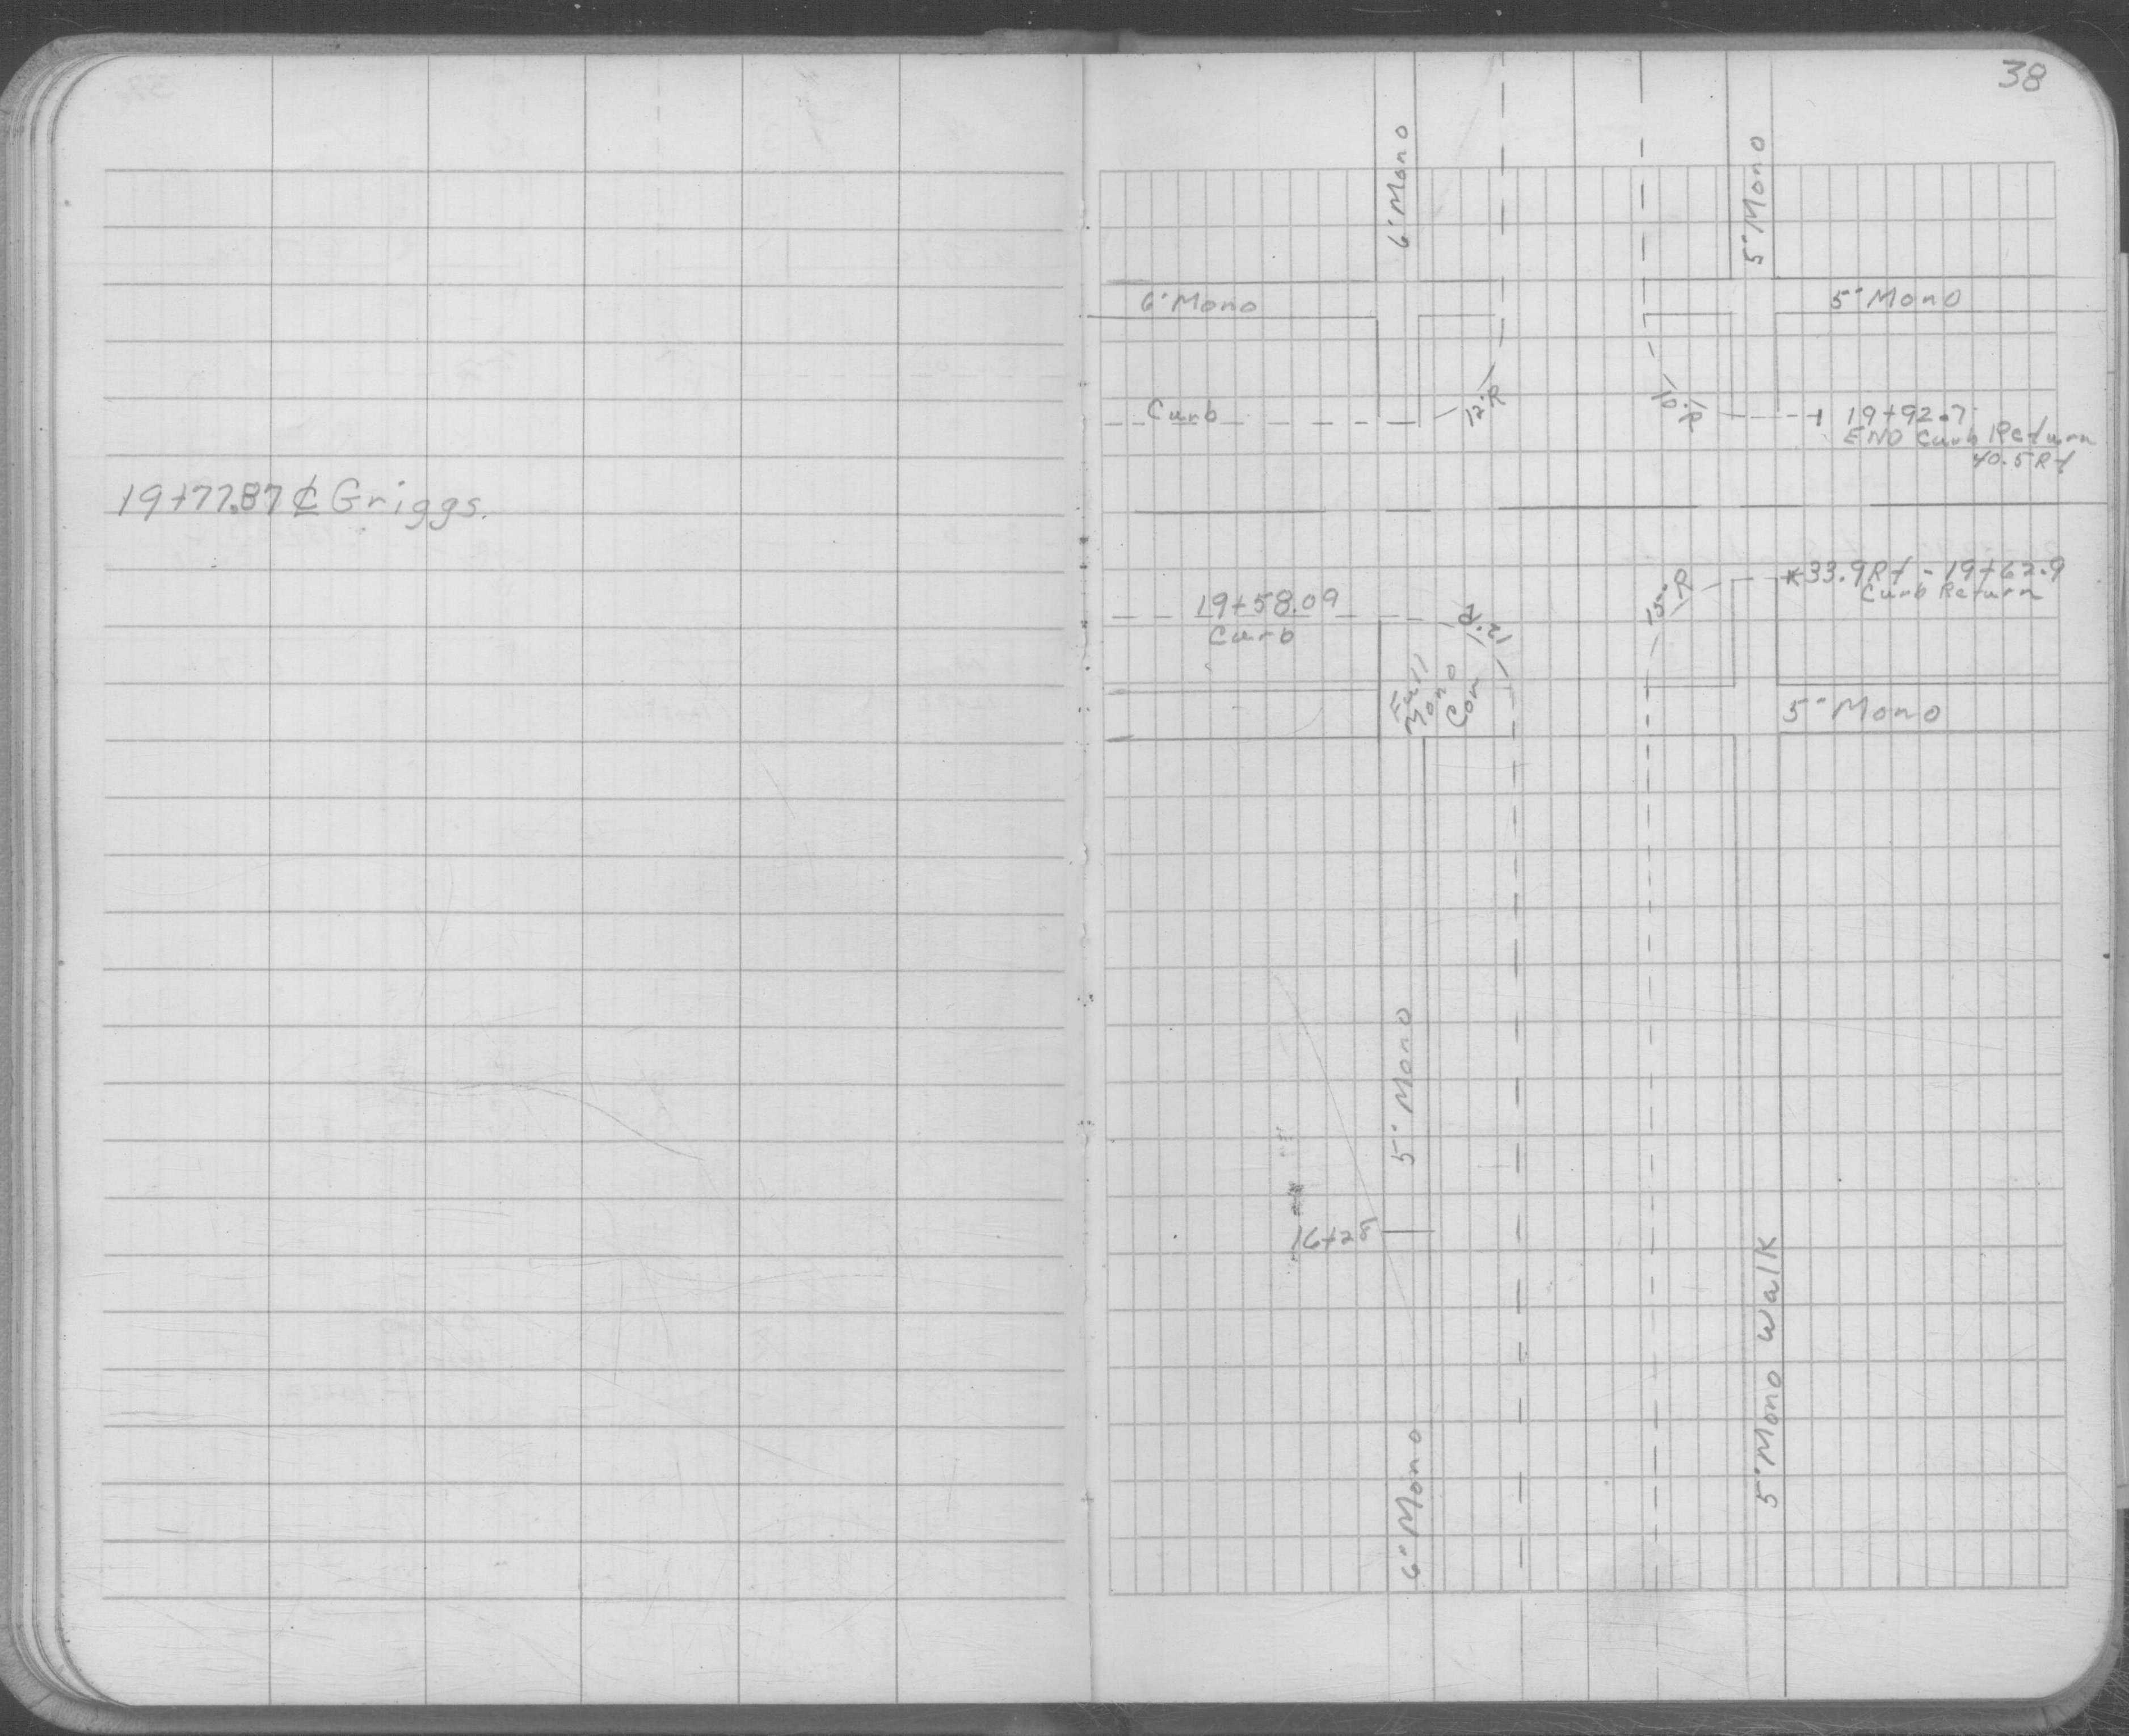 38
6' Mono
5' Mono
6' Mono
5' Mono
Curb
12'R
10'R
19+92.7
END Curb Return
40.5 Rt
19+77.87 ℄ Griggs.
33.9 Rt - 19+62.9
Curb Return
15'R
19+58.09
Curb
12'R
Full
Mono
Con
5' Mono
5' Mono
16+28
5' Mono Walk
6' Mono